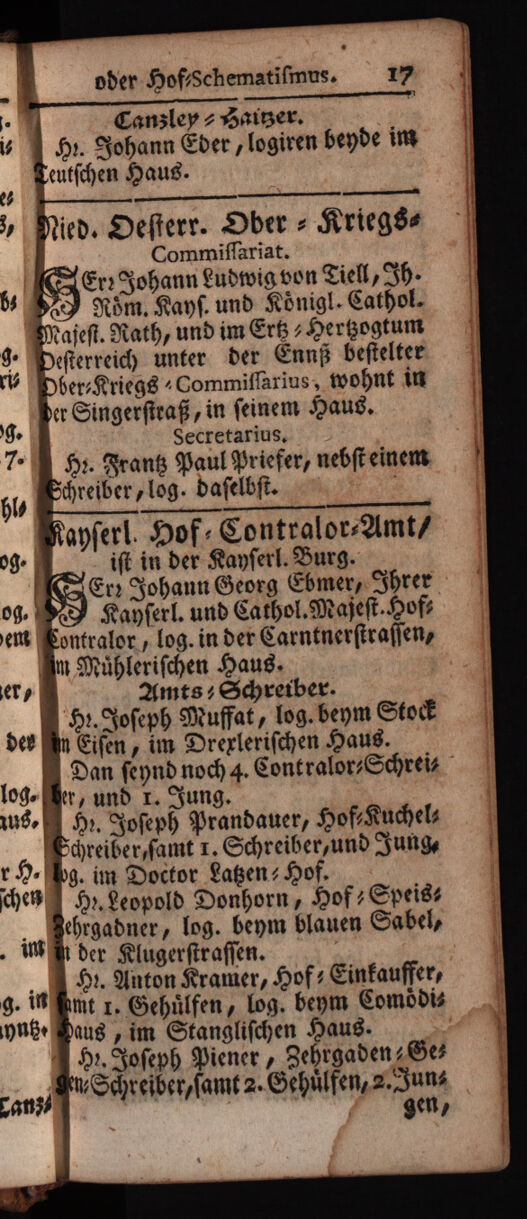 oder Hof-Schematismus. 17
Canzley-Haitzer.
Hr. Johann Eder, logiren beyde im
Teutschen Haus.
Nied. Oesterr. Ober-Kriegs-
Commissariat.
HErr Johann Ludwig von Tiell, Ih.
Röm. Kays. und Königl. Cathol.
Majest. Rath, und im Ertz-Hertzogtum
Oesterreich unter der Ennß bestelter
Ober-Kriegs-Commissarius, wohnt in
der Singerstraß, in seinem Haus.
Secretarius.
Hr. Frantz Paul Priefer, nebst einem
Schreiber, log. daselbst.
Kayserl. Hof-Contralor-Amt/
ist in der Kayserl. Burg.
HErr Johann Georg Ebmer, Ihrer
Kayserl. und Cathol. Majest. Hof-
Contralor, log. in der Carntnerstrassen,
im Mühlerischen Haus.
Amts-Schreiber.
Hr. Joseph Muffat, log. beym Stock
im Eisen, im Drexlerischen Haus.
Dan seynd noch 4. Contralor-Schrei-
ber, und 1. Jung.
Hr. Joseph Prandauer, Hof-Kuchel-
Schreiber, samt 1. Schreiber, und Jung,
log. im Doctor Latzen-Hof.
Hr. Leopold Donhorn, Hof-Speis-
Zehrgadner, log. beym blauen Sabel,
in der Klugerstrassen.
Hr. Anton Kramer, Hof-Einkauffer,
samt 1. Gehülfen, log. beym Comödi-
Haus, im Stanglischen Haus.
Hr. Joseph Piener, Zehrgaden-Ge-
gen-Schreiber, samt 2. Gehülfen, 2. Jun-
gen,